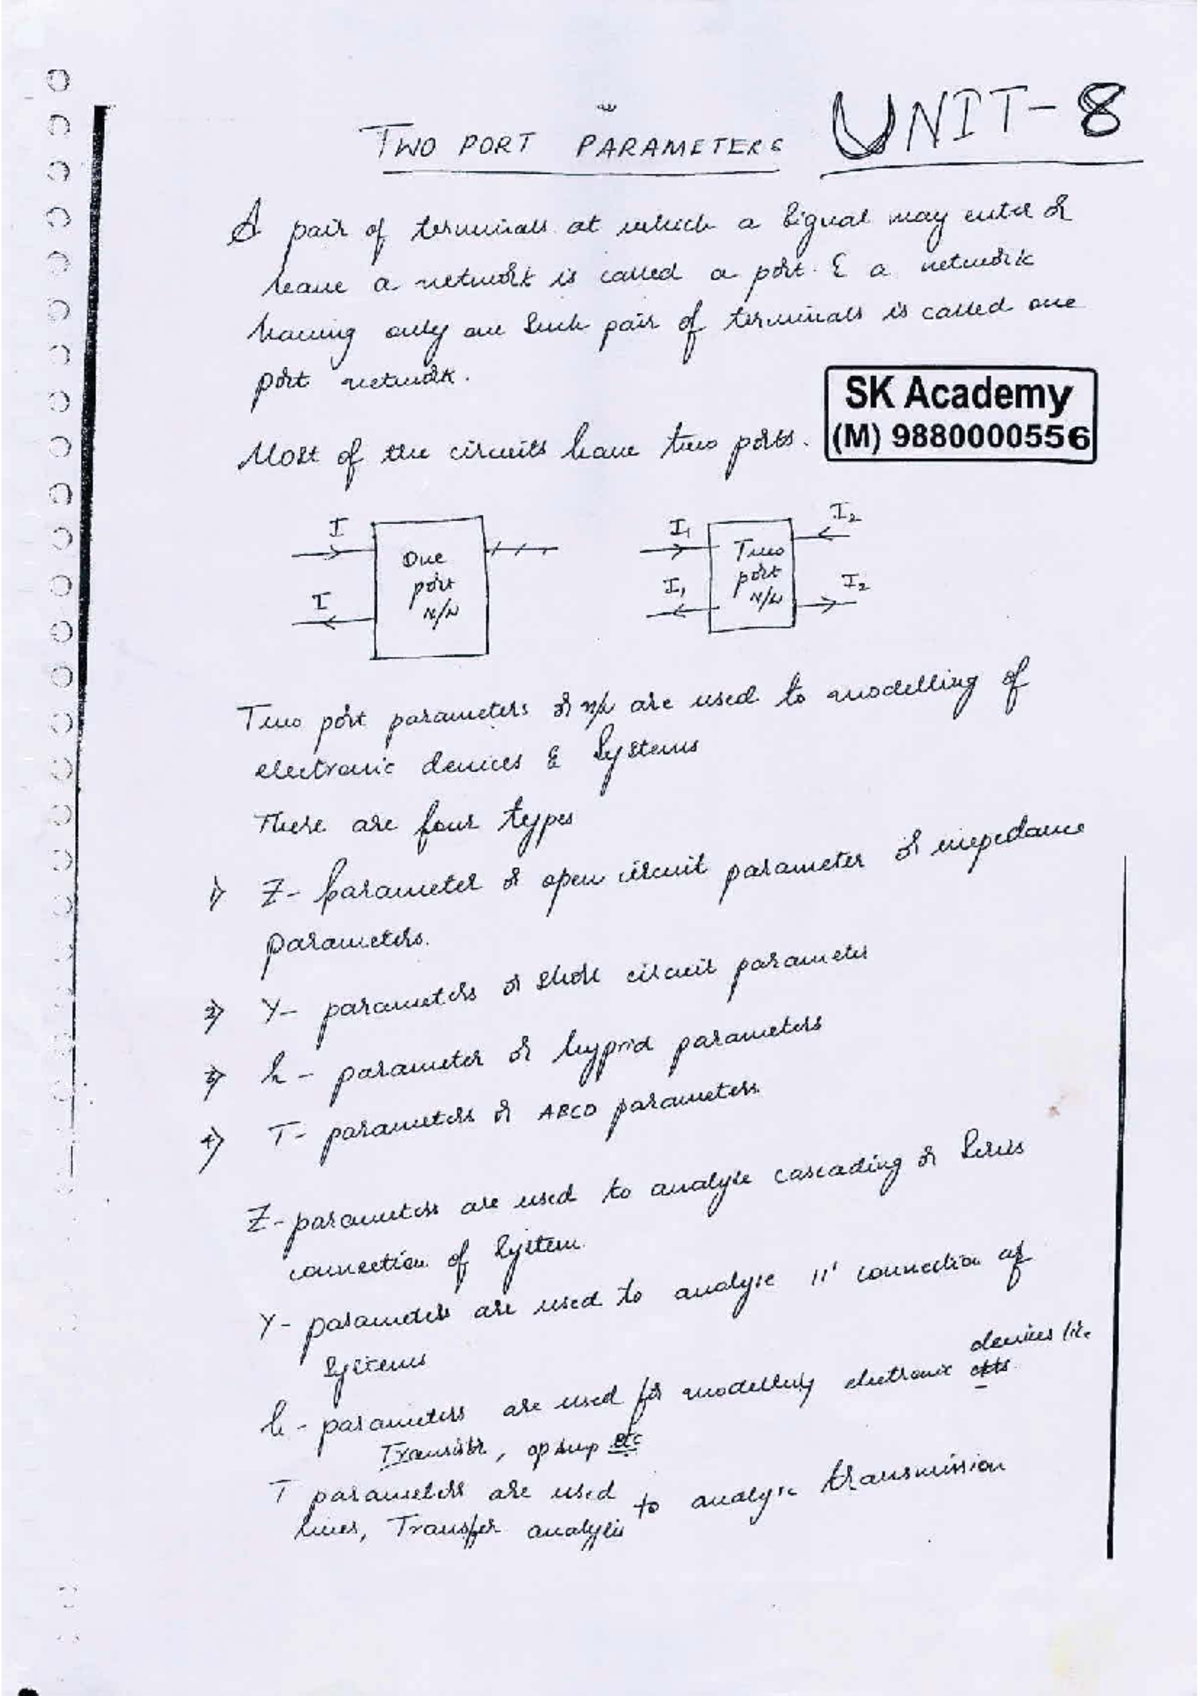 TWO PORT PARAMETERS UNIT-8
A pair of terminals at which a signal may enter or
leave a network is called a port. & a network
having only one such pair of terminals is called one
port network.
SK Academy
(M) 9880000556
Most of the circuits have two ports.
I
I
One
port
N/W
I1
I1
Two
port
N/W
I2
I2
Two port parameters or n/w are used to modelling of
electronic devices & systems
There are four types
1) Z- parameter or open circuit parameter or impedance
parameters.
2) Y- parameters or short circuit parameter
3) h- parameter or hyprid parameters
4) T- parameters or ABCD parameters.
Z-parameters are used to analyse cascading or series
connection of system.
Y- parameters are used to analyse 11' connection of
systems
h- parameters are used for modelling electronic ckts devices like
Transistr, op amp etc
T parameters are used to analyse transmission
lines, Transfer analysis